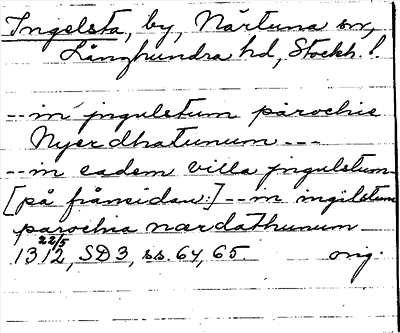 Ingelsta, by, Närtuna sn,
Långhundra hd, Stockh. l.
-- in jngulstum parochie
Nyerdhatunum ---
-- in eadem villa jngulstum
[på framsidan:] -- in ingilstum
parochia nærdathunum
1312 22/5, SD 3, ss. 64, 65. orig.